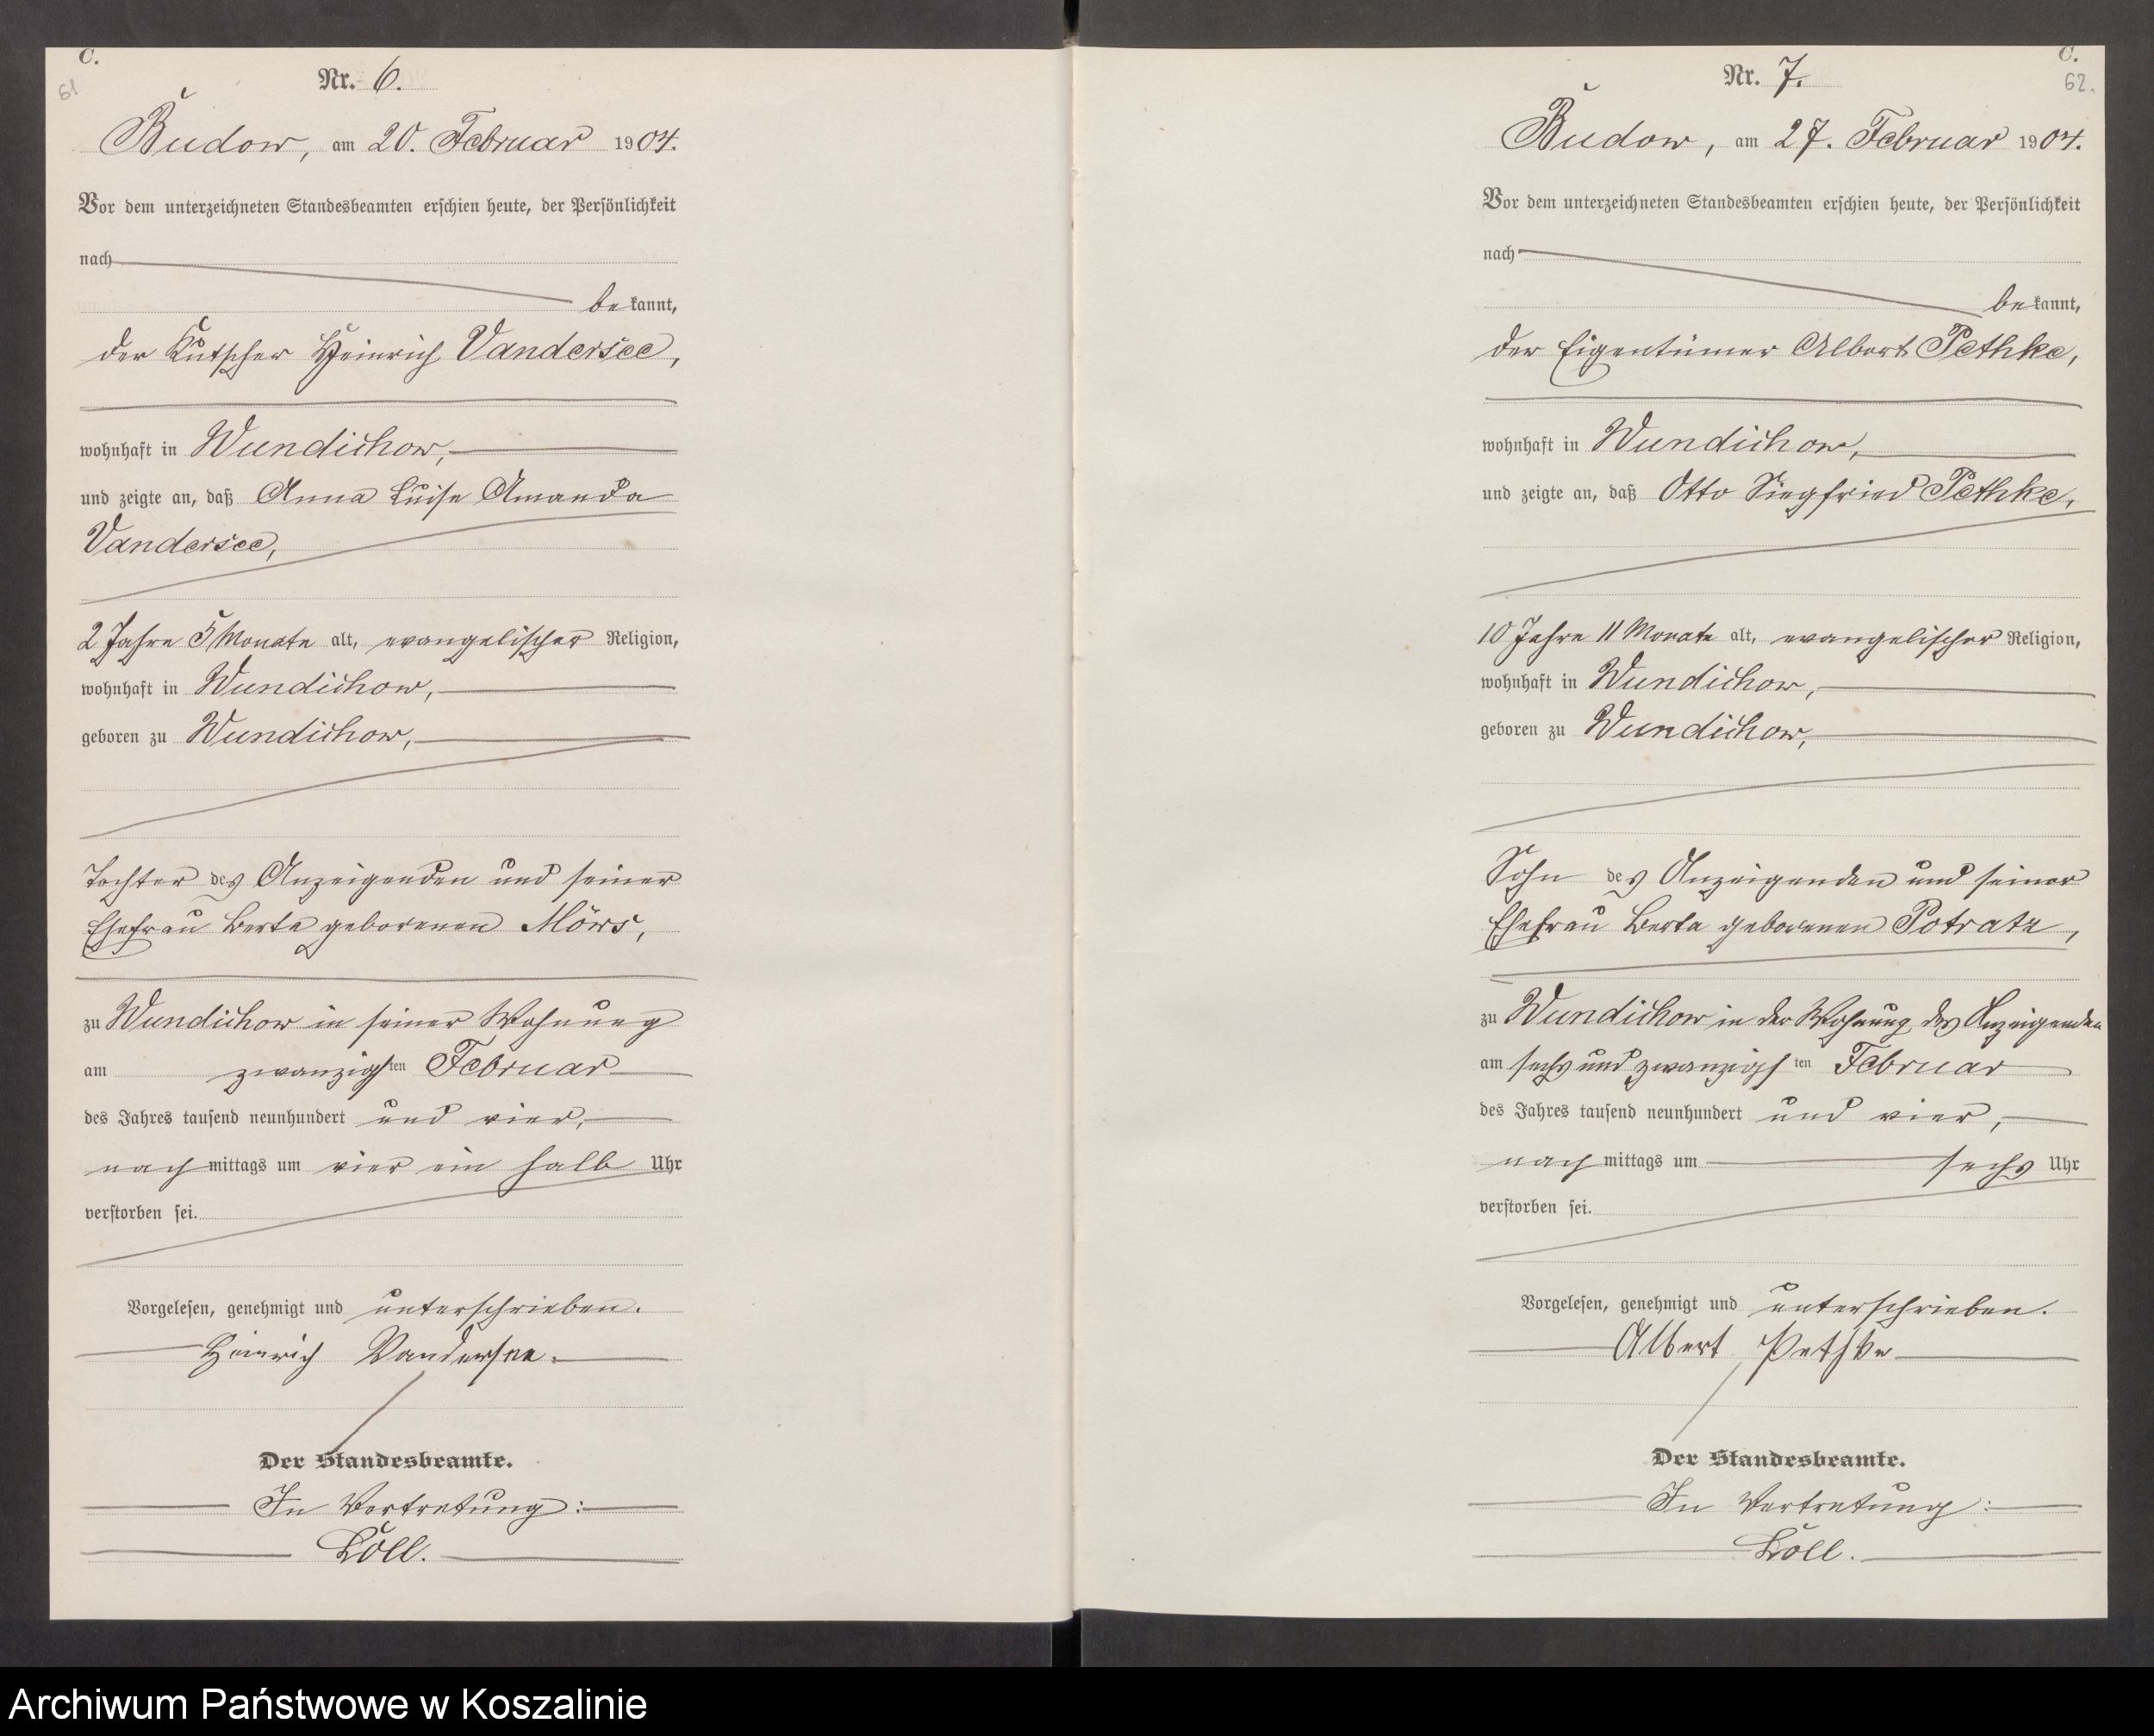 C.
61
Nr. 6.
Budow, am 20. Februar 1904.
Vor dem unterzeichneten Standesbeamten erschien heute, der Persönlichkeit
nach
bekannt,
der Kutscher Heinrich Vandersee,
wohnhaft in Wundichow,
und zeigte an, daß Anna Luise Amanda
Vandersee,
2 Jahre 5 Monate alt, evangelischer Religion,
wohnhaft in Wundichow,
geboren zu Wundichow,
Tochter des Anzeigenden und seiner
Ehefrau Berta geborenen Mörs,
zu Wundichow in seiner Wohnung
am zwanzigsten Februar
des Jahres tausend neunhundert und vier,
nachmittags um vier ein halb Uhr
verstorben sei.
Vorgelesen, genehmigt und unterschrieben.
Heinrich Vandersee.
Der Standesbeamte.
In Vertretung:
Löll.
C.
62.
Nr. 7.
Budow, am 27. Februar 1904.
Vor dem unterzeichneten Standesbeamten erschien heute, der Persönlichkeit
nach
bekannt,
der Eigentümer Albert Pethke,
wohnhaft in Wundichow,
und zeigte an, daß Otto Siegfried Pethke,
10 Jahre 11 Monate alt, evangelischer Religion,
wohnhaft in Wundichow,
geboren zu Wundichow,
Sohn des Anzeigenden und seiner
Ehefrau Berta geborenen Potratz,
zu Wundichow in der Wohnung des Anzeigenden
am sechs und zwanzigsten Februar
des Jahres tausend neunhundert und vier,
nachmittags um sechs Uhr
verstorben sei.
Vorgelesen, genehmigt und unterschrieben.
Albert Pethke
Der Standesbeamte.
In Vertretung:
Löll.
Archiwum Państwowe w Koszalinie